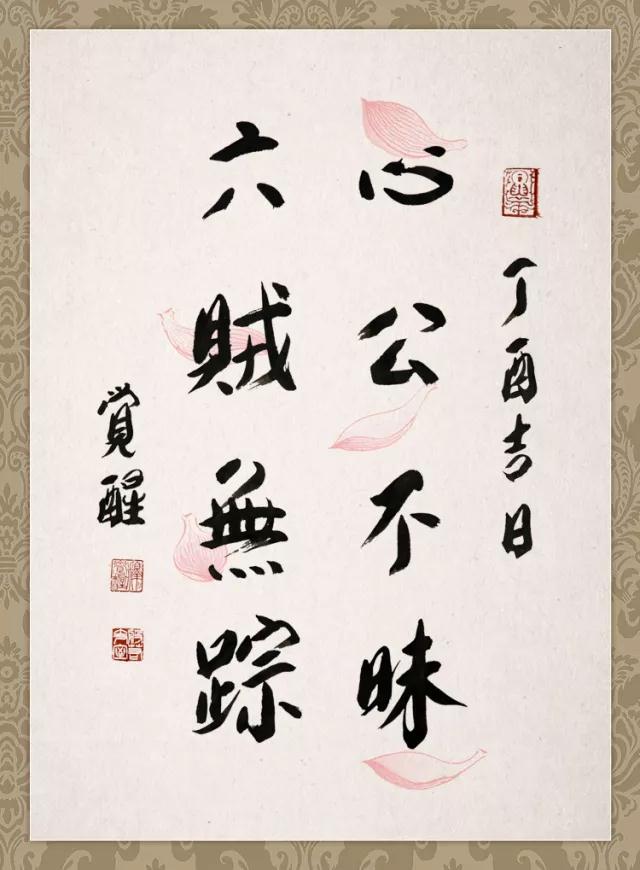 丁酉吉日
心公不昧
六賊無踪
覺醒